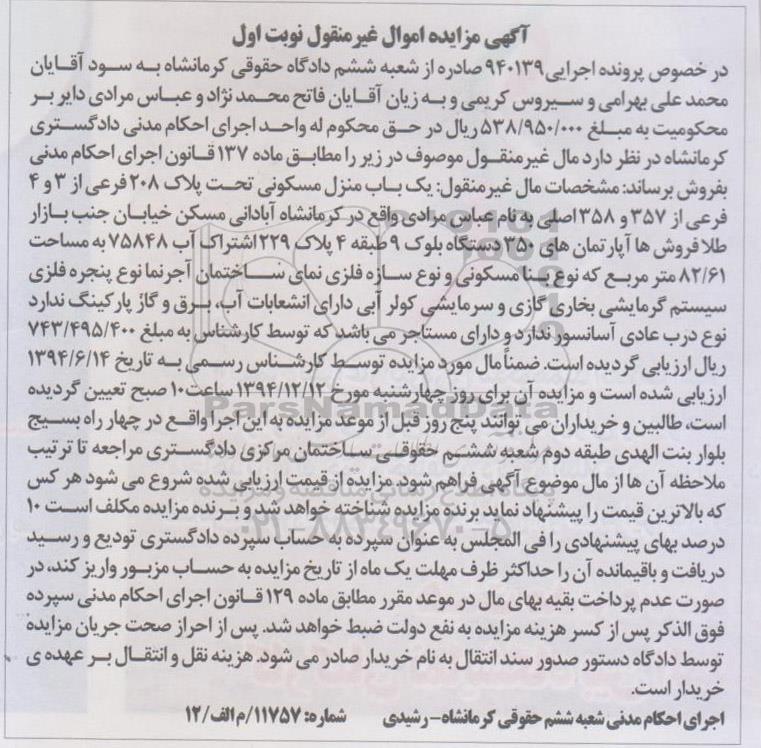 آگهی مزایده اموال غیرمنقول نوبت اول
در خصوص پرونده اجرایی۹۴۰۱۳۹ صادره از شعبه ششم دادگاه حقوقی کرمانشاه به سود آقایان
محمد علی بهرامی و سیروس کریمی و به زیان آقایان فاتح محمد نژاد و عباس مرادی دایر بر
محکومیت به مبلغ ۵۳۸/۹۵۰/۰۰۰ ریال در حق محکوم له واحد اجرای احکام مدنی دادگستری
کرمانشاه در نظر دارد مال غیرمنقول موصوف در زیر را مطابق ماده ۱۳۷ قانون اجرای احکام مدنی
بفروش برساند: مشخصات مال غیرمنقول: یک باب منزل مسکونی تحت پلاک ۲۰۸ فرعی از ۳ و ۴
فرعی از ۳۵۷ و ۳۵۸ اصلی به نام عباس مرادی واقع در کرمانشاه آبادانی مسکن خیابان جنب بازار
طلا فروش ها آپارتمان های ۳۵۰ دستگاه بلوک ۹ طبقه ۴ پلاک ۲۲۹ اشتراک آب ۷۵۸۴۸ به مساحت
۸۲/۶۱ متر مربع که نوع بنا مسکونی و نوع سازه فلزی نمای ساختمان آجرنما نوع پنجره فلزی
سیستم گرمایشی بخاری گازی و سرمایشی کولر آبی دارای انشعابات آب، برق و گاز پارکینگ ندارد
نوع درب عادی آسانسور ندارد و دارای مستاجر می باشد که توسط کارشناس به مبلغ ۷۴۳/۴۹۵/۴۰۰
ریال ارزیابی گردیده است. ضمناً مال مورد مزایده توسط کارشناس رسمی به تاریخ ۱۳۹۴/۶/۱۴
ارزیابی شده است و مزایده آن برای روز چهارشنبه مورخ ۱۳۹۴/۱۲/۱۲ ساعت۱۰ صبح تعیین گردیده
است، طالبین و خریداران می توانند پنج روز قبل از موعد مزایده به این اجرا واقع در چهار راه بسیج
بلوار بنت الهدی طبقه دوم شعبه ششم حقوقی ساختمان مرکزی دادگستری مراجعه تا ترتیب
ملاحظه آن ها از مال موضوع آگهی فراهم شود. مزایده از قیمت ارزیابی شده شروع می شود هر کس
که بالاترین قیمت را پیشنهاد نماید برنده مزایده شناخته خواهد شد و برنده مزایده مکلف است ۱۰
درصد بهای پیشنهادی را فی المجلس به عنوان سپرده به حساب سپرده دادگستری تودیع و رسید
دریافت و باقیمانده آن را حداکثر ظرف مهلت یک ماه از تاریخ مزایده به حساب مزبور واریز کند، در
صورت عدم پرداخت بقیه بهای مال در موعد مقرر مطابق ماده ۱۲۹ قانون اجرای احکام مدنی سپرده
فوق الذکر پس از کسر هزینه مزایده به نفع دولت ضبط خواهد شد. پس از احراز صحت جریان مزایده
توسط دادگاه دستور صدور سند انتقال به نام خریدار صادر می شود. هزینه نقل و انتقال بر عهده ی
خریدار است.
اجرای احکام مدنی شعبه ششم حقوقی کرمانشاه- رشیدی شماره: ۱۱۷۵۷/م الف/۱۲
ParsNamadData
۰۲۱-۸۸۳۴۹۶۷۰-۵